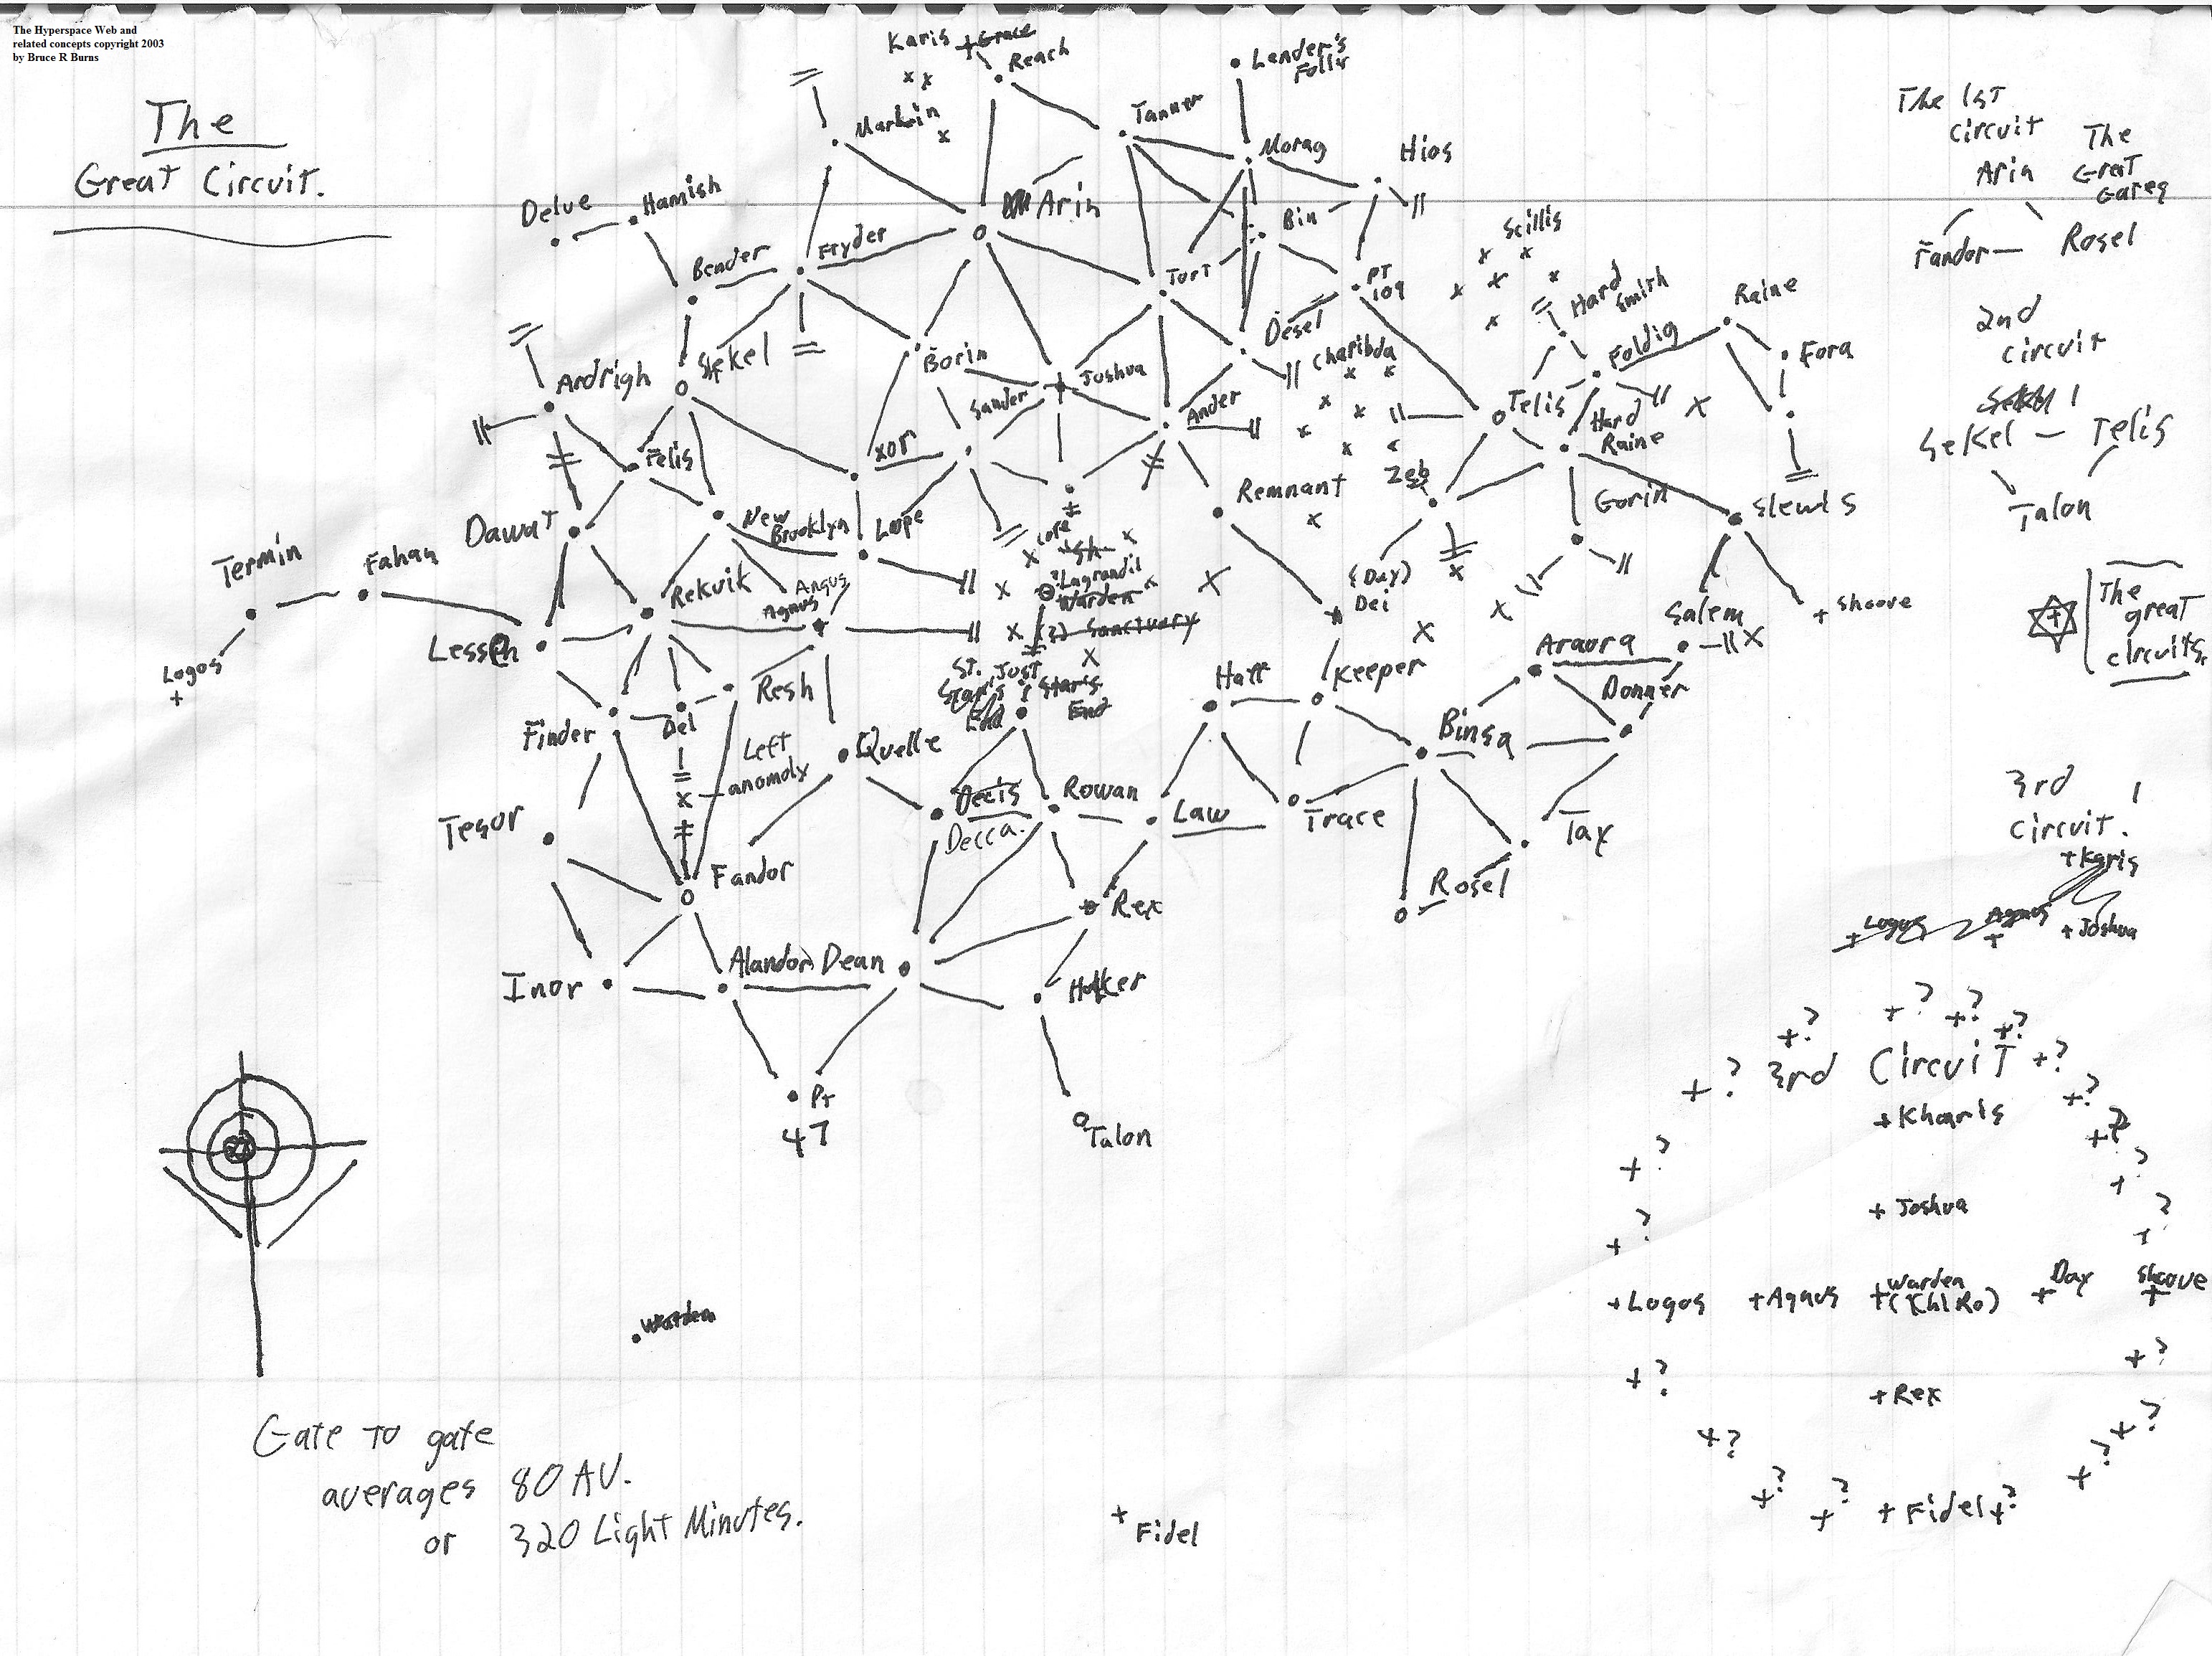 The Hyperspace Web and
related concepts copyright 2003
by Bruce R Burns
The
Great Circuit.
Karis
Grace
Reach
Lender's
Folly
Tanner
Markin
Morag
Hios
Delve
Hamish
Arin
Bin
Scillis
Bender
Fryder
Tort
PT
109
Hard
Smith
Raine
Ardrigh
Sekel
Borin
Joshua
Desel
Charibda
Foldig
Fora
Sander
Ander
Telis
Hard
Raine
Felis
xor
Remnant
Zeb
Gorin
Slewis
Dawat
New
Brooklyn
Lope
Termin
Fahan
Rekvik
Angus
Agnus
Lagrandil
Warden
(?) Sanctuary
(Day)
Dei
Salem
Shoove
Logos
Lessen
St. Just
Star's
End
Star's
End
Hatt
Keeper
Araora
Donner
Finder
Del
Resh
Left
anomoly
Quelle
Binsa
Tesor
Decis
Decca.
Rowan
Law
Trace
Tax
Fandor
Rex
Rosel
Inor
Alandor
Dean
Pt
47
Talon
Warden
Fidel
Gate to gate
averages 80 AU.
or 320 Light Minutes.
The 1st
circuit
Arin
The
Great
Gates
Fandor — Rosel
2nd
circuit
Sekel — Telis
Talon
The
great
circuits.
3rd
Circuit.
+Karis
+Logos
Agnus
+
+Joshua
+? +? +? +?
+? 3rd Circuit +?
+?
+Kharis
+?
+?
+?
+ Joshua
+?
+?
+Logos +Agnus +Warden
(Chi Ro) +Day Shoove
+
+?
+?
+Rex
+?
+?
+?
+?
+?
+ Fidel +?